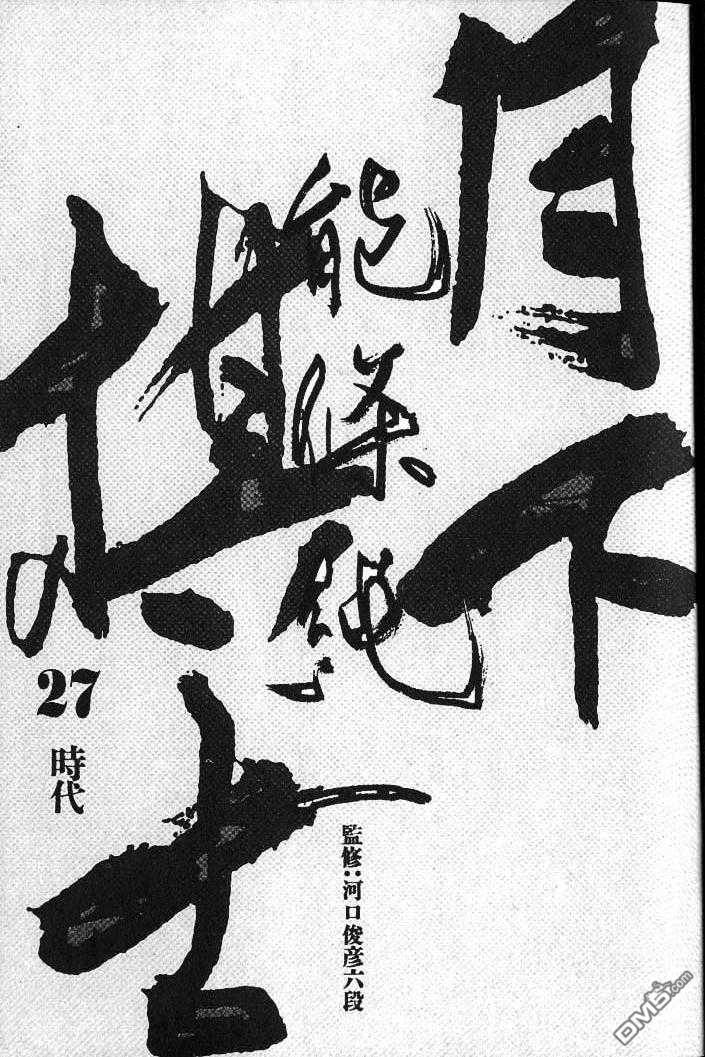 月下の棋士
能條純一
27
時代
監修:河口俊彦六段
DM5.com